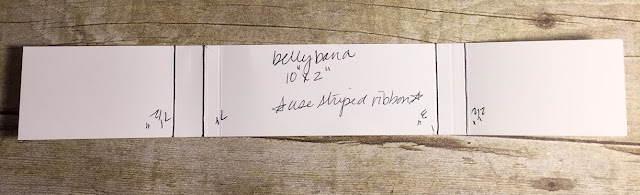 belly band
10" x 2"
☆use striped ribbon☆
7½"
7"
3"
2½"